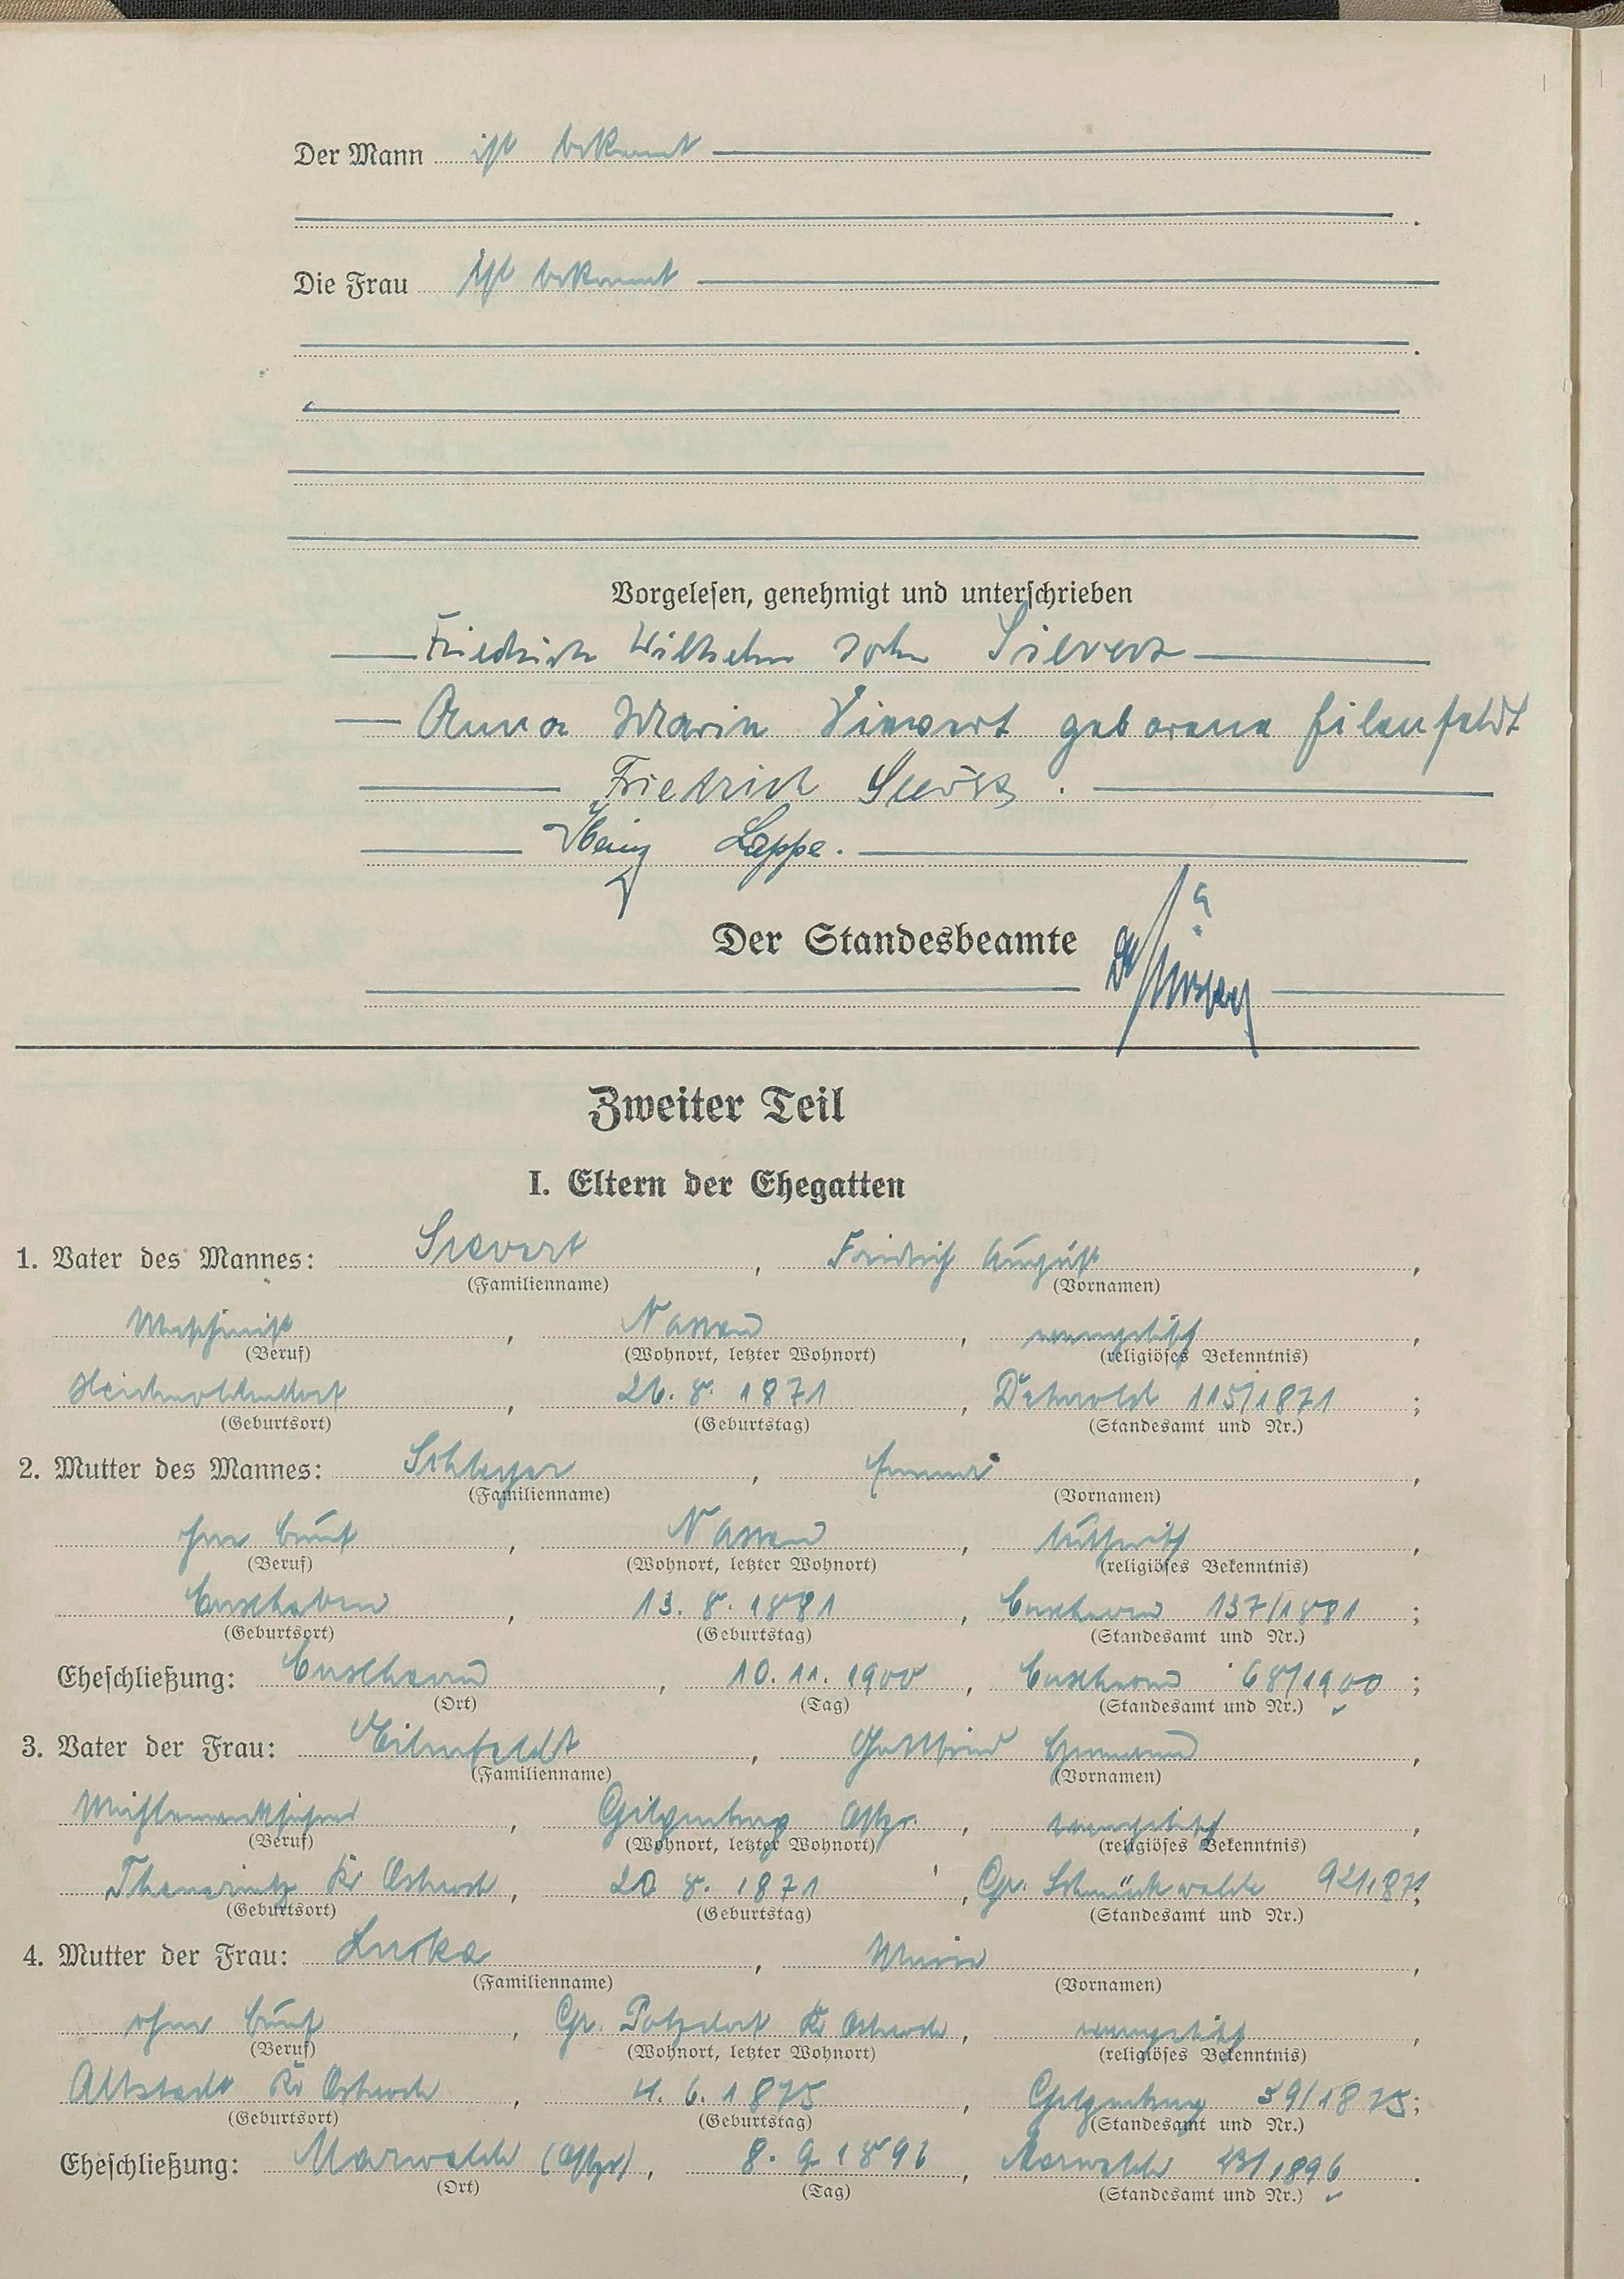 Der Mann ist bekannt
Die Frau ist bekannt
Vorgelesen, genehmigt und unterschrieben
Friedrich Wilhelm John Sievert
Anna Marie Sievert geborene Eilenfeldt
Friedrich
Heinz Lappe.
Der Standesbeamte
Zweiter Teil
I. Eltern der Ehegatten
1. Vater des Mannes: Sievert, Friedrich August,
(Familienname) (Vornamen)
Maschinist, Nassau, evangelisch,
(Beruf) (Wohnort, letzter Wohnort) (religiöses Bekenntnis)
26. 8. 1871, Detmold 115/1871;
(Geburtsort) (Geburtstag) (Standesamt und Nr.)
2. Mutter des Mannes: Schleyer, Emma,
(Familienname) (Vornamen)
ohne Beruf, Nassau, lutherisch,
(Beruf) (Wohnort, letzter Wohnort) (religiöses Bekenntnis)
Cuxhaven, 13. 8. 1881, Cuxhaven 137/1881;
(Geburtsort) (Geburtstag) (Standesamt und Nr.)
Eheschließung: Cuxhaven, 10. 11. 1900, Cuxhaven 68/1900;
(Ort) (Tag) (Standesamt und Nr.)
3. Vater der Frau: Eilenfeldt, Gottfried Hermann,
(Familienname) (Vornamen)
Mühlenwerkführer, Gilgenburg Ostpr., evangelisch,
(Beruf) (Wohnort, letzter Wohnort) (religiöses Bekenntnis)
Kr Osterode, 20 8. 1871, Gr. Schmückwalde 92/1871;
(Geburtsort) (Geburtstag) (Standesamt und Nr.)
4. Mutter der Frau: Luska, Marie,
(Familienname) (Vornamen)
ohne Beruf, Gr. Potzdorf Kr Osterode, evangelisch,
(Beruf) (Wohnort, letzter Wohnort) (religiöses Bekenntnis)
Altstadt Kr Osterode, 4. 6. 1875, Gilgenburg 59/1875;
(Geburtsort) (Geburtstag) (Standesamt und Nr.)
Eheschließung: Marwalde (Ostpr), 8. 9. 1896, Marwalde /1896.
(Ort) (Tag) (Standesamt und Nr.)